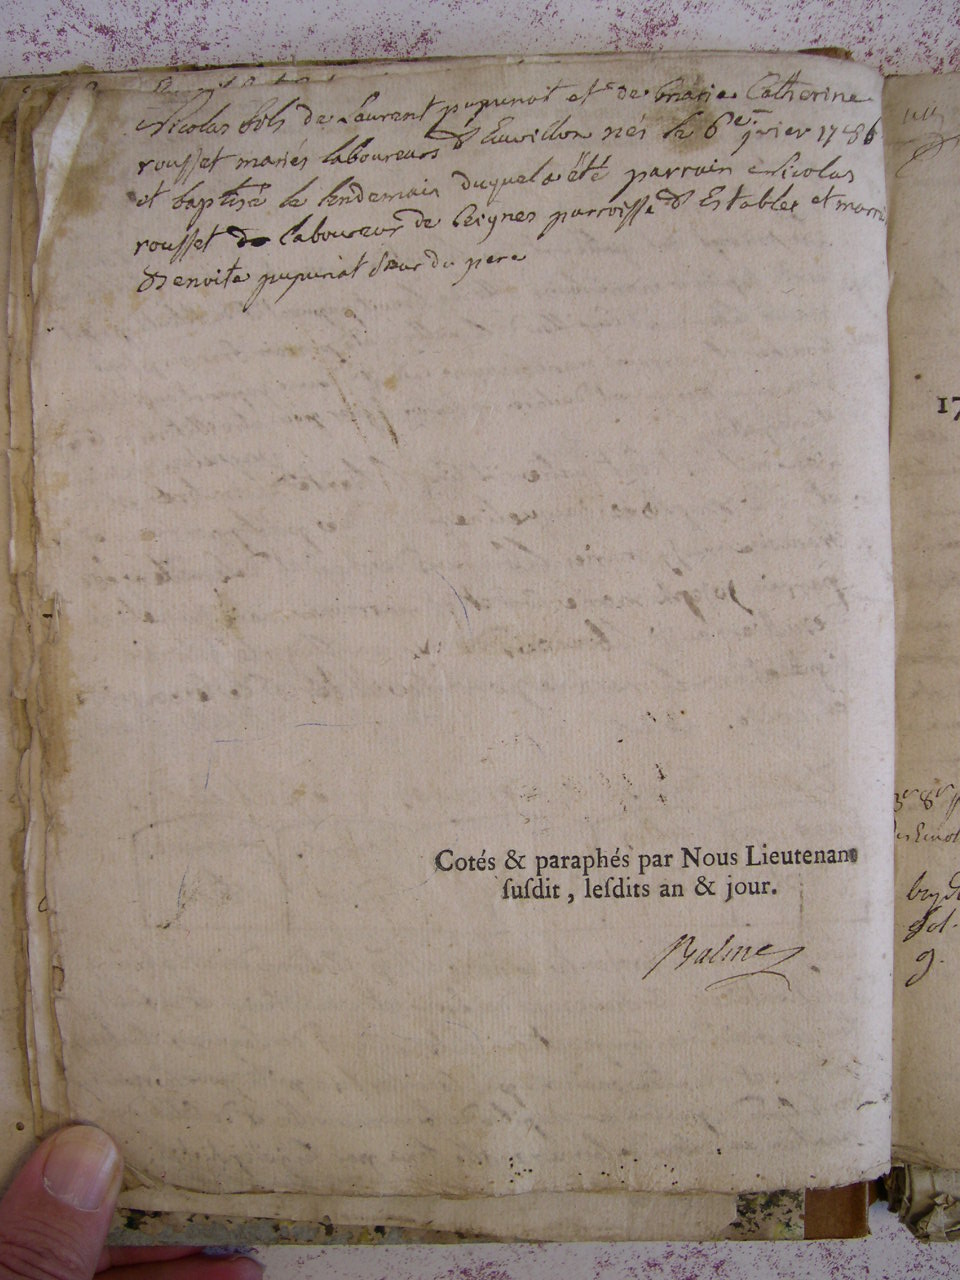 Nicolas fils de Laurent pupunat et de Marie Catherine
rousset mariés laboureurs d'Euvillon nés le 6e jvier 1786
et baptisé le lendemain duquel a été parrain Nicolas
rousset laboureur de Leignes parroisse d'Estables et marri
Benoite pupunat sœur du pere
Cotés & paraphés par Nous Lieutenant
ſuſdit, leſdits an & jour.
Balme
17